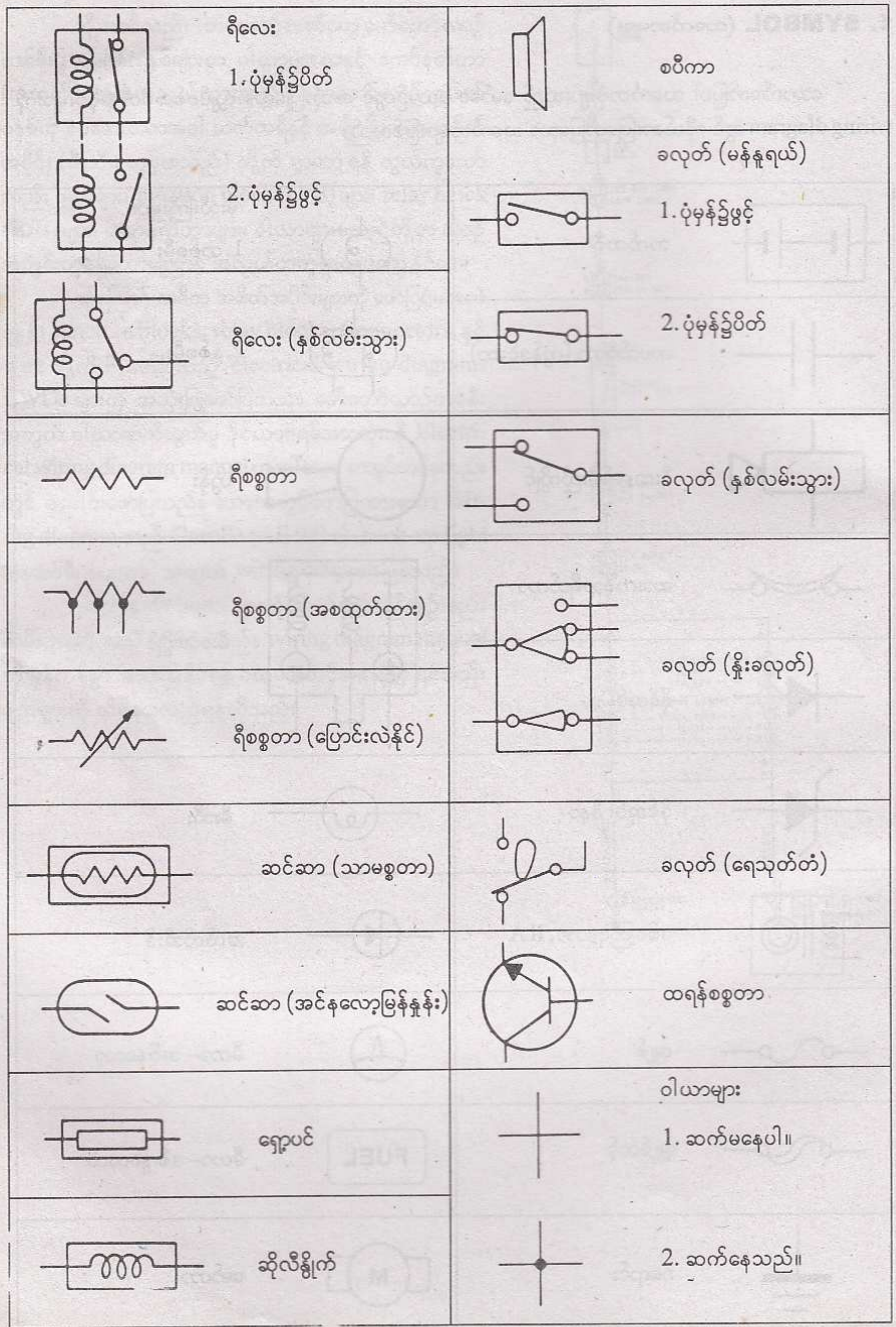 ရီလေး
1. ပုံမှန်၌ပိတ်
2. ပုံမှန်၌ဖွင့်
ရီလေး (နှစ်လမ်းသွား)
ရီစစ္စတာ
ရီစစ္စတာ (အစထုတ်ထား)
ရီစစ္စတာ (ပြောင်းလဲနိုင်)
ဆင်ဆာ (သာမစ္စတာ)
ဆင်ဆာ (အင်နလော့မြန်နှုန်း)
ရှော့ပင်
ဆိုလီနွိုက်
စပီကာ
ခလုတ် (မန်နူရယ်)
1. ပုံမှန်၌ဖွင့်
2. ပုံမှန်၌ပိတ်
ခလုတ် (နှစ်လမ်းသွား)
ခလုတ် (နှိုးခလုတ်)
ခလုတ် (ရေသုတ်တံ)
ထရန်စစ္စတာ
ဝါယာများ
1. ဆက်မနေပါ။
2. ဆက်နေသည်။